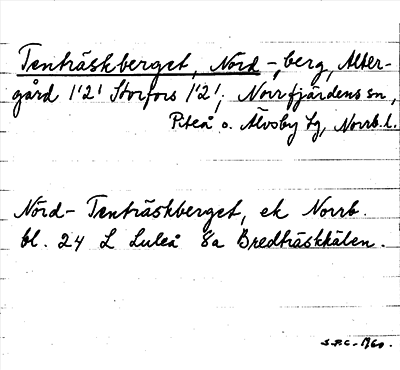 Tenträskberget, Nord-, berg, Alter-
gård 1'2' Storfors 1'2', Norrfjärdens sn,
Piteå o. Älvsby tg, Norrb. l.
Nord-Tenträskberget, ek Norrb.
bl. 24 L Luleå 8a Bredträskhälen.
S.P.C. 1960.